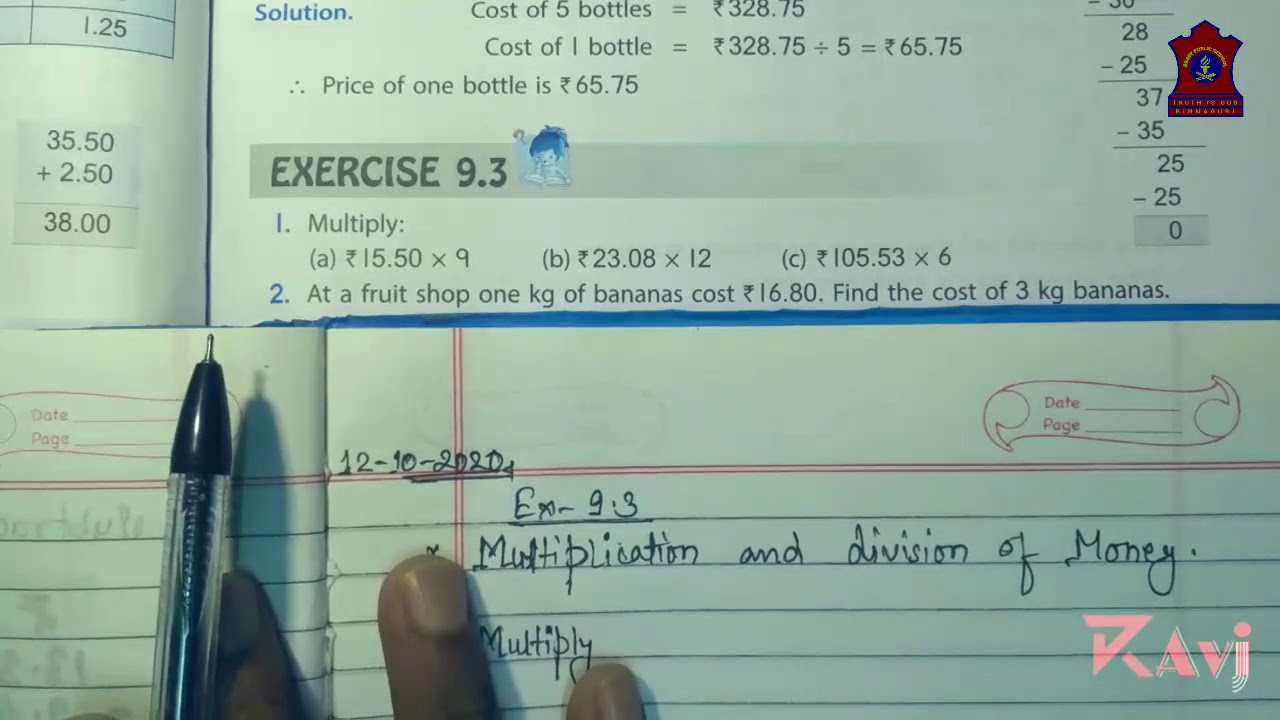 1.25
35.50
+ 2.50
38.00
Solution. Cost of 5 bottles = ₹328.75
Cost of 1 bottle = ₹328.75 ÷ 5 = ₹65.75
∴ Price of one bottle is ₹65.75
28
– 25
37
– 35
25
– 25
0
TRUTH IS GOD
BINNAGURI
EXERCISE 9.3
1. Multiply:
(a) ₹15.50 × 9 (b) ₹23.08 × 12 (c) ₹105.53 × 6
2. At a fruit shop one kg of bananas cost ₹16.80. Find the cost of 3 kg bananas.
Date
Page
Date
Page
12-10-2020
Ex- 9.3
Multiplication and division of Money.
Multiply
RAvj